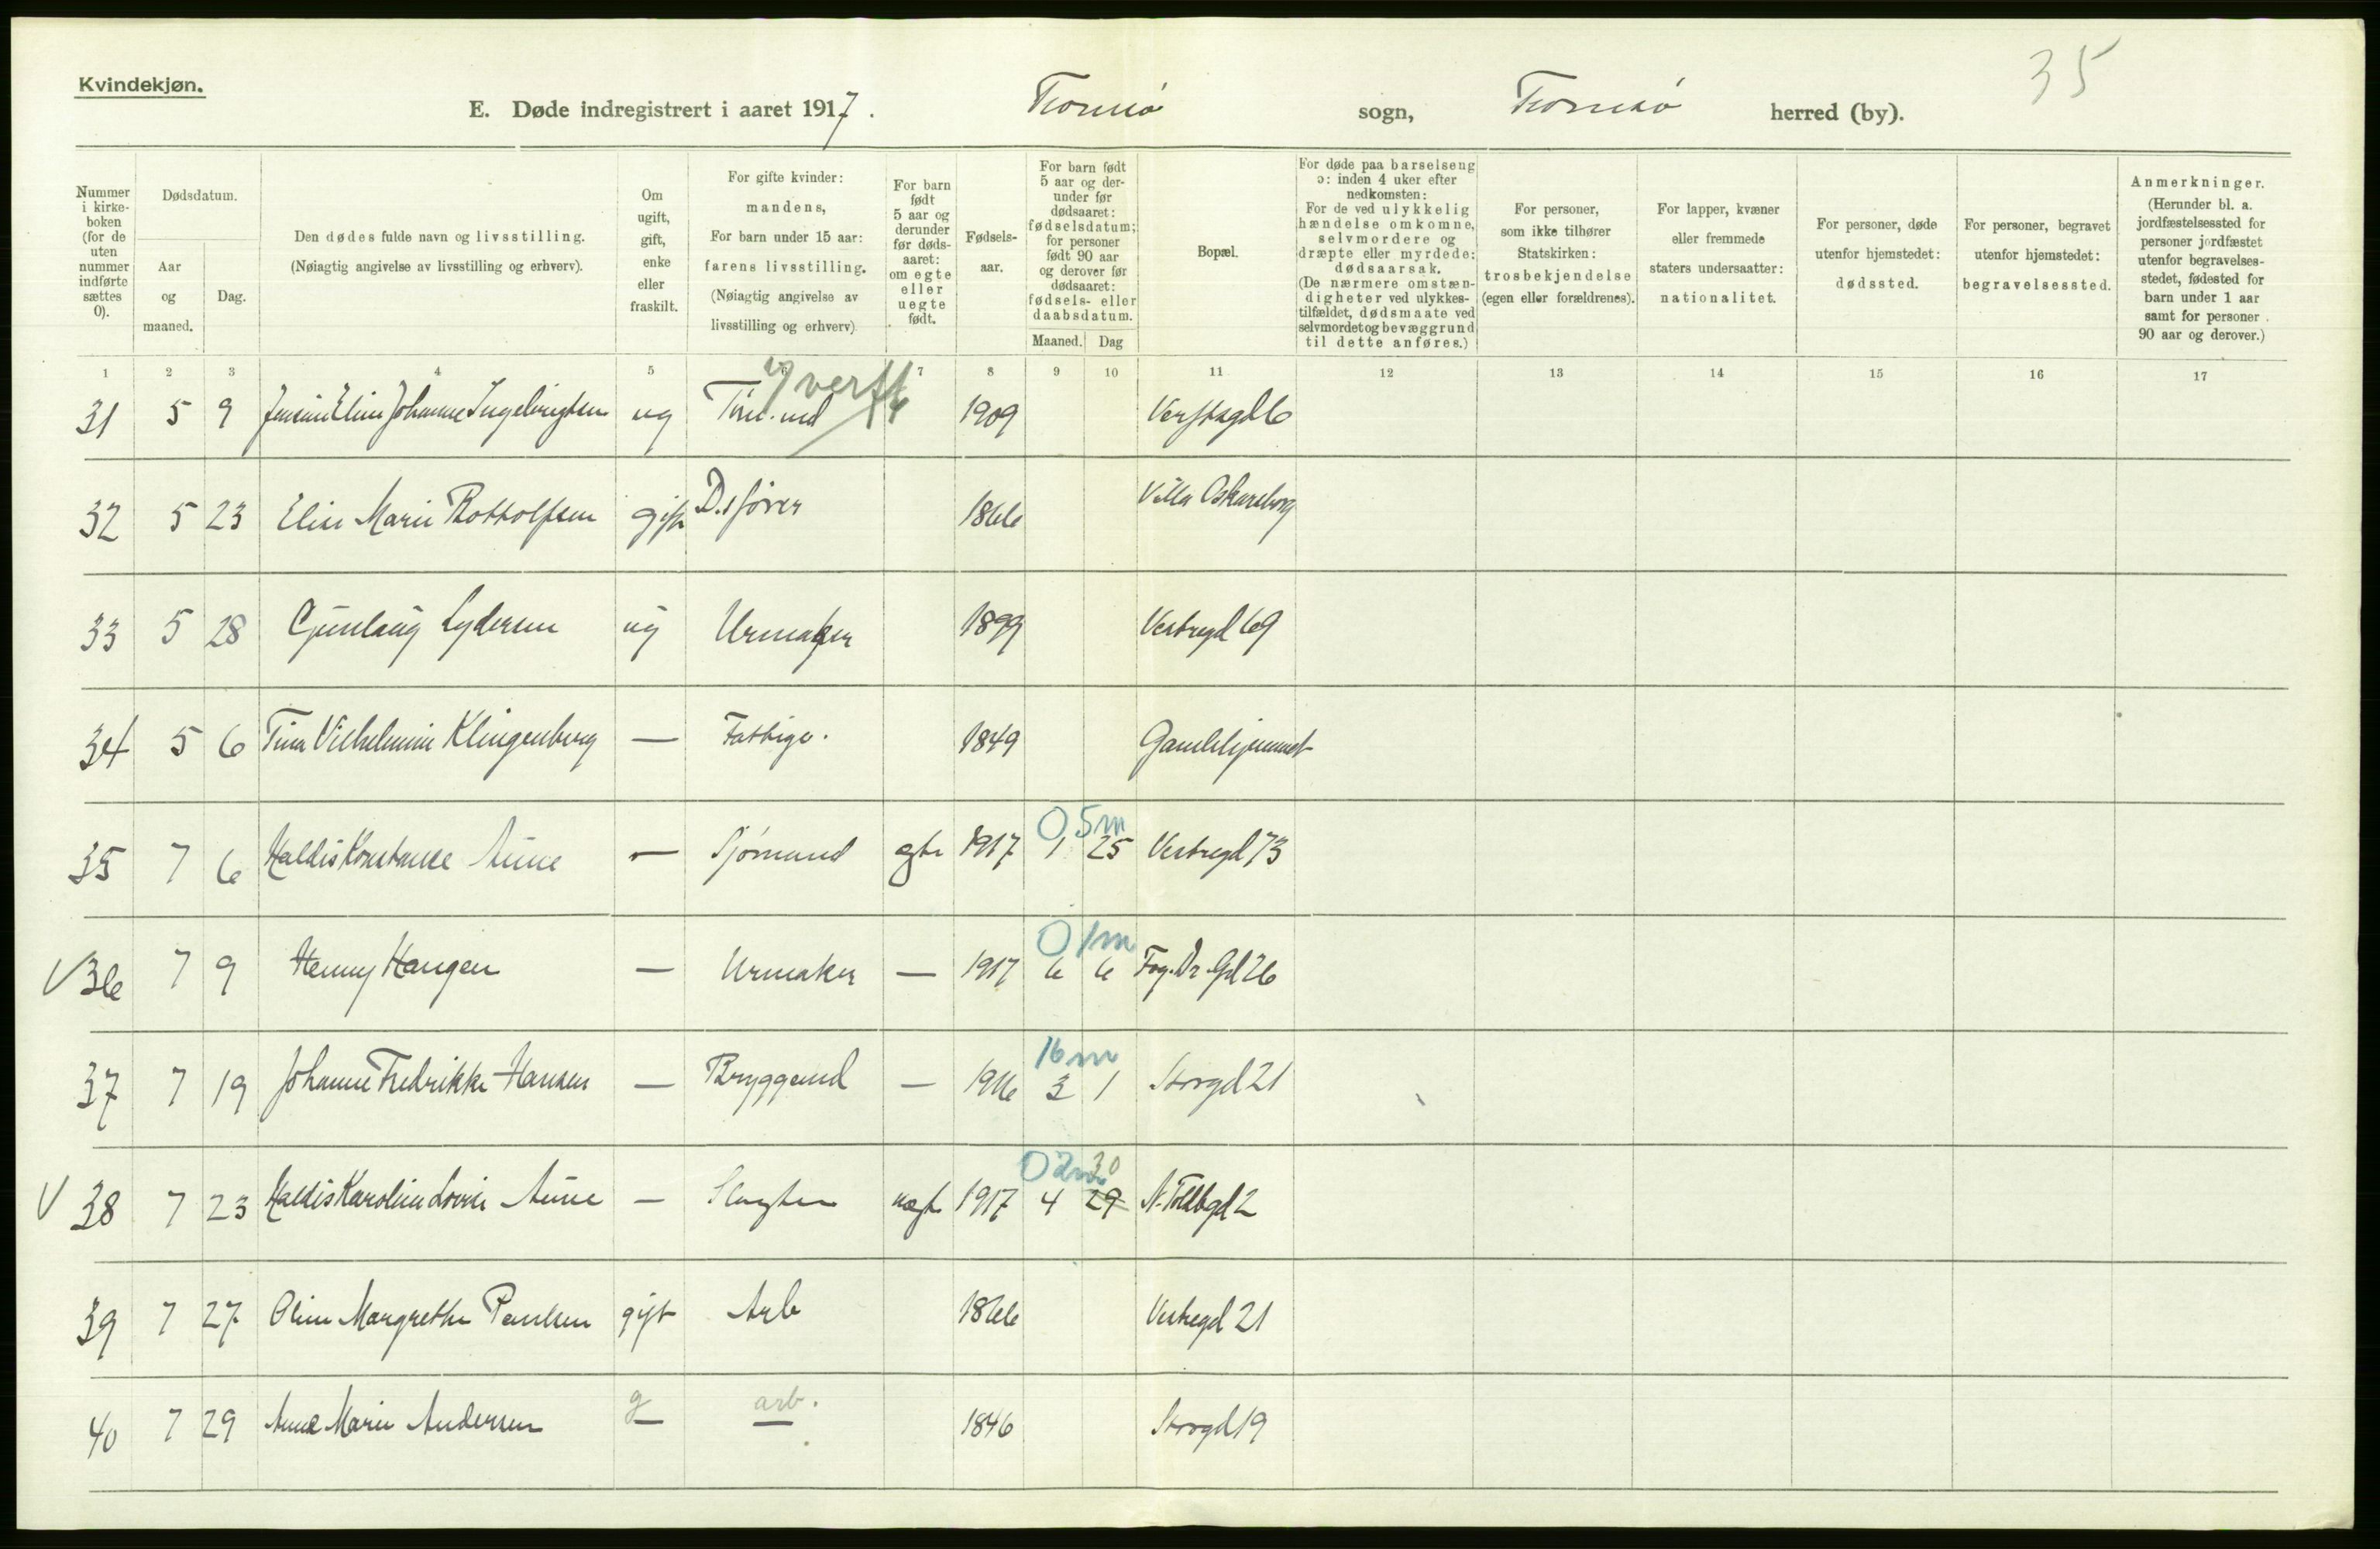 35
Kvindekjøn.
E. Døde indregistrert i aaret 1917. Tromsø sogn, Tromsø herred (by).
Nummer i kirkeboken (for de uten nummer indførte sættes 0).
Dødsdatum.
Aar og maaned.
Dag.
Den dødes fulde navn og livsstilling.
(Nøiagtig angivelse av livsstilling og erhverv).
Om ugift, gift, enke eller fraskilt.
For gifte kvinder: mandens,
For barn under 15 aar: farens livsstilling.
(Nøiagtig angivelse av livsstilling og erhverv)
For barn født 5 aar og derunder før dødsaaret: om egte eller uegte født.
Fødselsaar.
For barn født 5 aar og derunder før dødsaaret: fødselsdatum; for personer født 90 aar og derover før dødsaaret: fødsels- eller daabsdatum.
Maaned. Dag
Bopæl.
For døde paa barselseng ɔ: inden 4 uker efter nedkomsten:
For de ved ulykkelig hændelse omkomne, selvmordere og dræpte eller myrdede: dødsaarsak.
(De nærmere omstændigheter ved ulykkestilfældet, dødsmaate ved selvmordet og bevæggrund til dette anføres.)
For personer, som ikke tilhører Statskirken: trosbekjendelse (egen eller forældrenes).
For lapper, kvæner eller fremmede staters undersaatter: nationalitet.
For personer, døde utenfor hjemstedet: dødssted.
For personer, begravet utenfor hjemstedet: begravelsessted.
Anmerkninger.
(Herunder bl. a. jordfæstelsessted for personer jordfæstet utenfor begravelsesstedet, fødested for barn under 1 aar samt for personer 90 aar og derover.)
1 2 3 4 5 7 8 9 10 11 12 13 14 15 16 17
31 5 9 Eline Johanne Ingebrigtsen ug Tim.md 1909 Verftsgd 6
32 5 23 Elise Marie Rotvolfsen gift D.sfører 1866 Villa Oskarsborg
33 5 28 Gunlaug Lydersen ug Urmaker 1899 Vestregd 69
34 5 6 Tina Vilhelmine Klingenberg — Fattige. 1849 Gamlehjemmet
0 5m
35 7 6 Haldis Konstance Aune — Sjømand gte 1917 1 25 Vestregd 73
0 1m
V 36 7 9 Henny Haugen — Urmaker — 1917 6 6 Fog.Dr.Gd 26
16m
37 7 19 Johanne Fredrikke Hansen — Bryggemd — 1916 3 1 Storgd 21
0 2m 30
V 38 7 23 Haldis Karoline Lovise Aune — Slagter uegte 1917 4 29 N.Toldbgd 2
39 7 27 Oline Margrethe Paulsen gift Arb 1866 Vestregd 21
40 7 29 Anna Marie Andersen g arb. 1846 Storgd 19